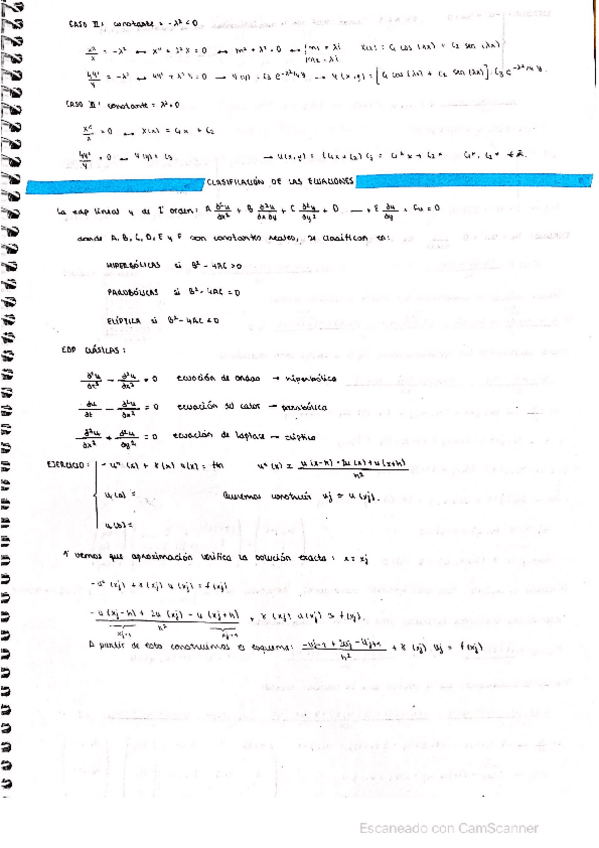 CASO II: constante = -λ² < 0
X''/X = -λ² ↔ X'' + λ²X = 0 ↔ m² + λ² = 0 X(x) = C₁ cos (λx) + C₂ sen (λx)
CASO III: constante = λ² = 0
X''/X = 0 X(x) = C₁x + C₂
→ u(x,y) = (C₁x + C₂) C₃ = C₁* x + C₂*
CLASIFICACIÓN DE LAS ECUACIONES
donde A, B, C, D, E y F son constantes reales, se clasifican en:
HIPERBÓLICAS si B² - 4AC > 0
PARABÓLICAS si B² - 4AC = 0
ELÍPTICA si B² - 4AC < 0
EDP CLÁSICAS:
∂²u/∂t² - ∂²u/∂x² = 0 ecuación de ondas → hiperbólica
∂u/∂t - ∂²u/∂x² = 0 ecuación del calor → parabólica
∂²u/∂x² + ∂²u/∂y² = 0 ecuación de Laplace → elíptica
EJERCICIO: - u''(x) + γ(x) u(x) = u''(x) ≈ u(x-h) - 2u(x) + u(x+h) / h²
Queremos construir uj ≈ u(xj).
vemos que aproximación verifica la solución exacta: x = xj
-u''(xj) + γ(xj) u(xj) = f(xj)
-u(xj-h) + 2u(xj) - u(xj+h) / h² + γ(xj) u(xj) ≈ f(xj).
A partir de esto construimos el esquema: -uj-1 + 2uj - uj+1 / h² + γ(xj) uj = f(xj)
Escaneado con CamScanner